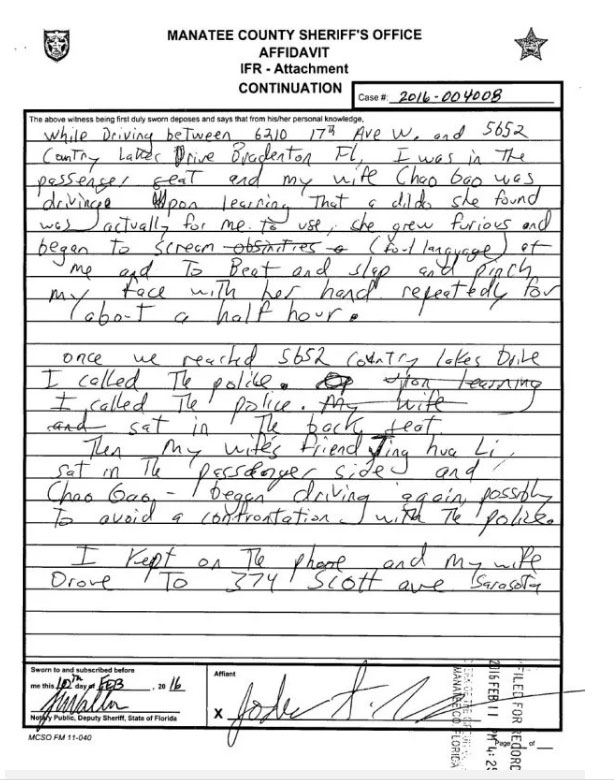 MANATEE COUNTY SHERIFF'S OFFICE
AFFIDAVIT
IFR - Attachment
CONTINUATION
Case #: 2016-004008
The above witness being first duly sworn deposes and says that from his/her personal knowledge,
while Driving between 6210 17th Ave W. and 5652
Country Lakes Drive Bradenton FL, I was in The
passenger seat and my wife Chao Gao was
driving. Upon learning That a dildo she found
was actually for me to use, she grew furious and
began To scream obsinities (foul language) at
me and To Beat and slap and pinch
my face with her hand repeatedly for
about a half hour.
once we reached 5652 Country Lakes Drive
I called The police. upon learning
I called The police. My wife
and sat in The back seat
Then My wife's friend Jing hua Li,
sat in The passenger side and
Chao Gao - began driving again, possibly
To avoid a confrontation with The police.
I Kept on The phone and my wife
Drove To 374 Scott ave Sarasota
Sworn to and subscribed before
me this 10th day of FEB, 2016
Notary Public, Deputy Sheriff, State of Florida
Affiant
X
MCSO FM 11-040
FILED FOR RECORD
2016 FEB 11 PM 4: 25
MANATEE CO. FLORIDA
Page of